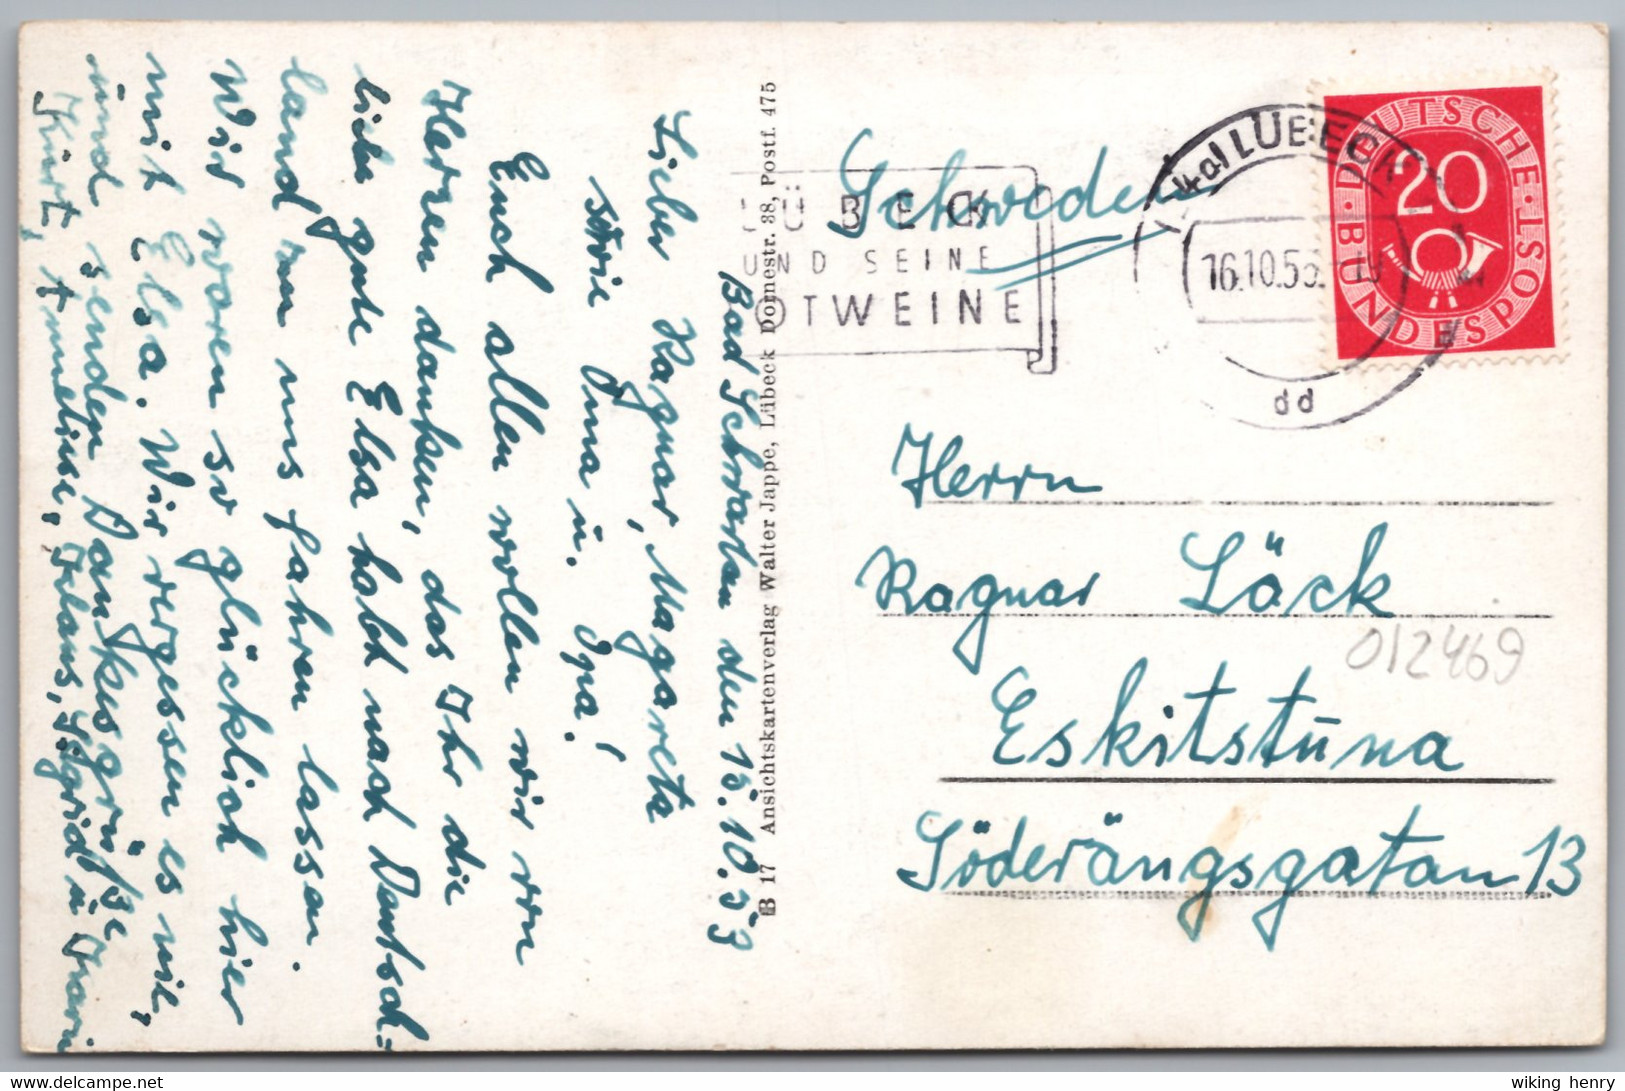 Bad Schwartau den 15.10.53
Lieber Ragnar, Magareta
sowie Oma u. Opa!
Euch allen wollen wir von
Herzen danken, das Ihr die
liebe gute Elsa habt nach Deutsch=
land zu uns fahren lassen.
Wir waren so glücklich hier
mit Elsa. Wir vergessen es nie,
und senden Dankesgrüße
Kurt, Anneliese, Klaus, Sigrid u. Karin
B 17 Ansichtskartenverlag Walter Jappe, Lübeck Domestr. 38, Postf. 475
Schweden
LÜBECK
UND SEINE
ROTWEINE
LÜBECK
16.10.53
dd
DEUTSCHE BUNDESPOST
20
Herrn
Ragnar Löck
Eskitstuna
Söderängsgatan 13
012469
wiking henry